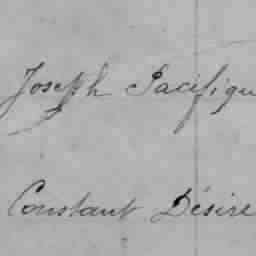 Joseph Pacifiqu
Constant Désiré